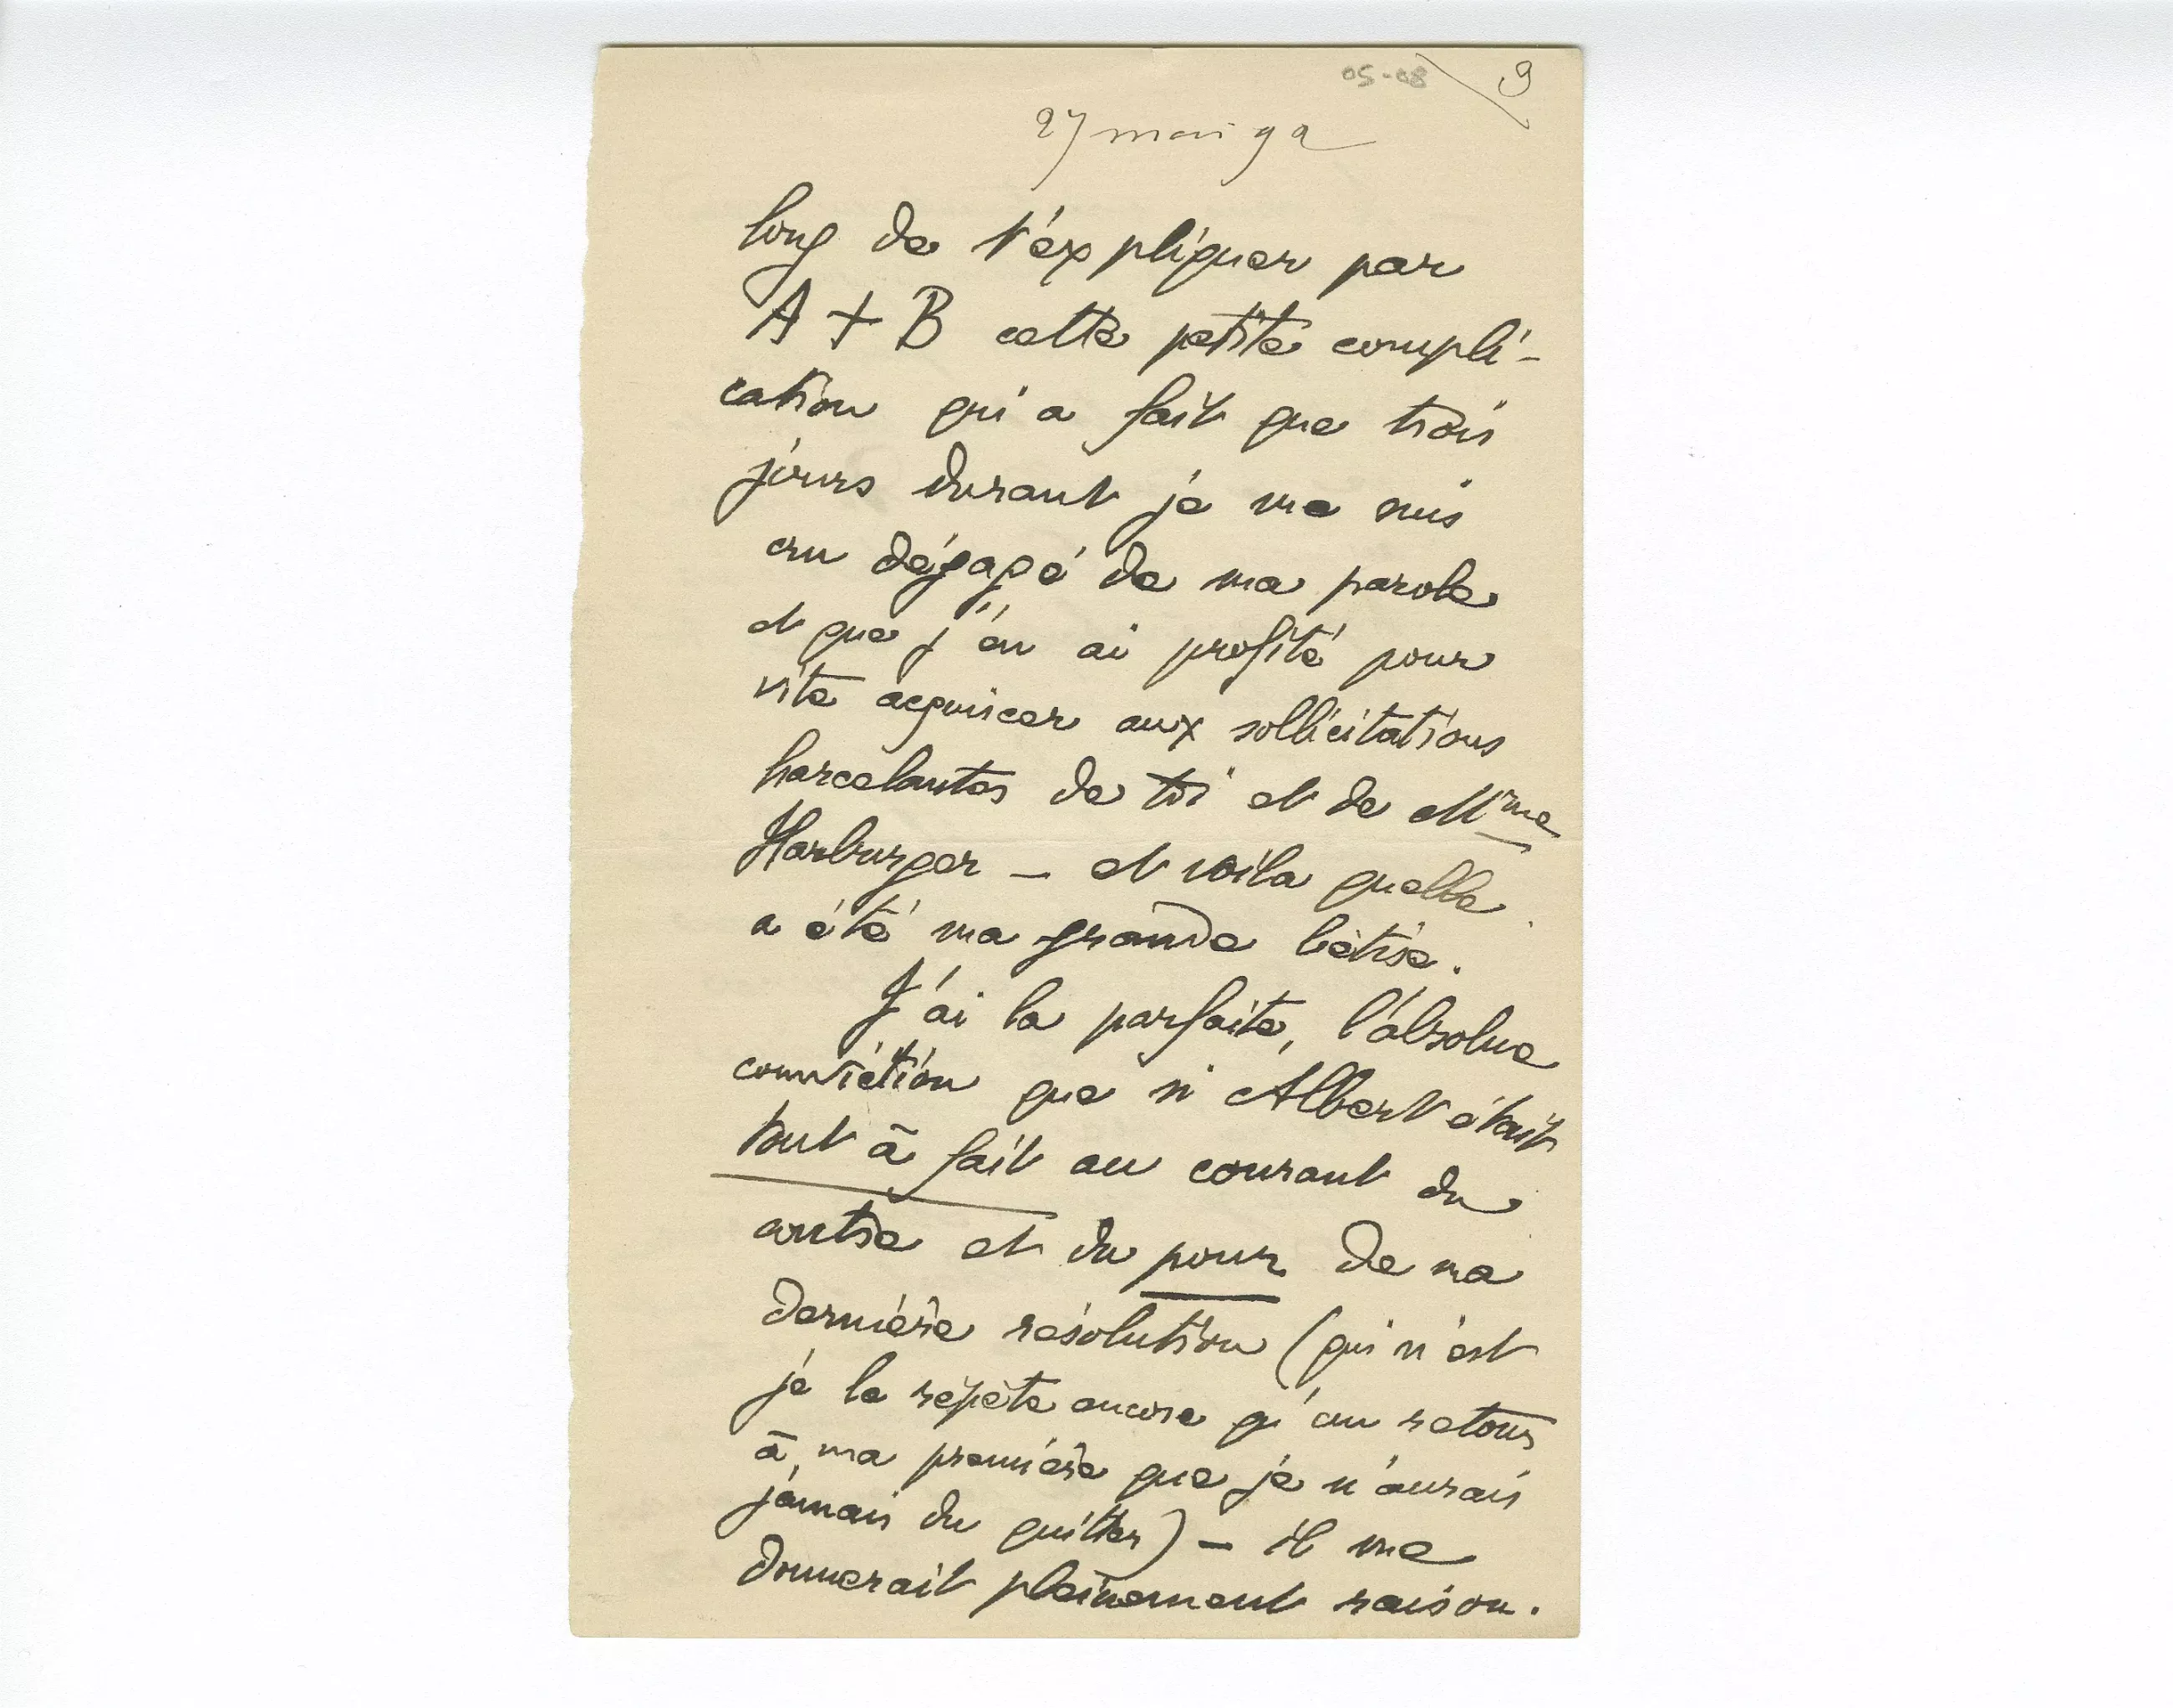 05-08
9
27 mai 92
long de t'expliquer par
A + B cette petite compli-
cation qui a fait que trois
jours durant je me suis
cru dégagé de ma parole
et que j'en ai profité pour
vite acquiscer aux sollicitations
harcelantes de toi et de Mme
Harburger — et voila quelle
a été ma grande bêtise.
J'ai la parfaite, l'absolue
conviction que si Albert était
tout à fait au courant du
contre et du pour de ma
dernière résolution (qui n'est
je le répète encore qu'un retour
à ma première que je n'aurais
jamais du quitter) — il me
donnerait pleinement raison.